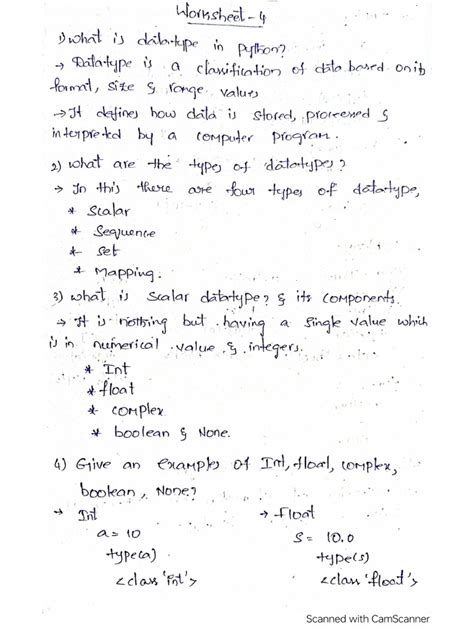 Worksheet - 4
1) What is data-type in Python?
→ Datatype is a classification of data based on its
format, size & range values
→ It defines how data is stored, processed &
interpreted by a computer program.
2) What are the types of datatypes?
→ In this there are four types of datatype,
* Scalar
* Sequence
* Set
* Mapping.
3) What is Scalar datatype? & its components.
→ It is nothing but having a single value which
is in numerical value & integers.
* Int
* float
* complex
* boolean & None.
4) Give an examples of Int, float, complex,
boolean, None?
→ Int → Float
a = 10 S = 10.0
type(a) type(s)
<class 'int'> <class 'float'>
Scanned with CamScanner